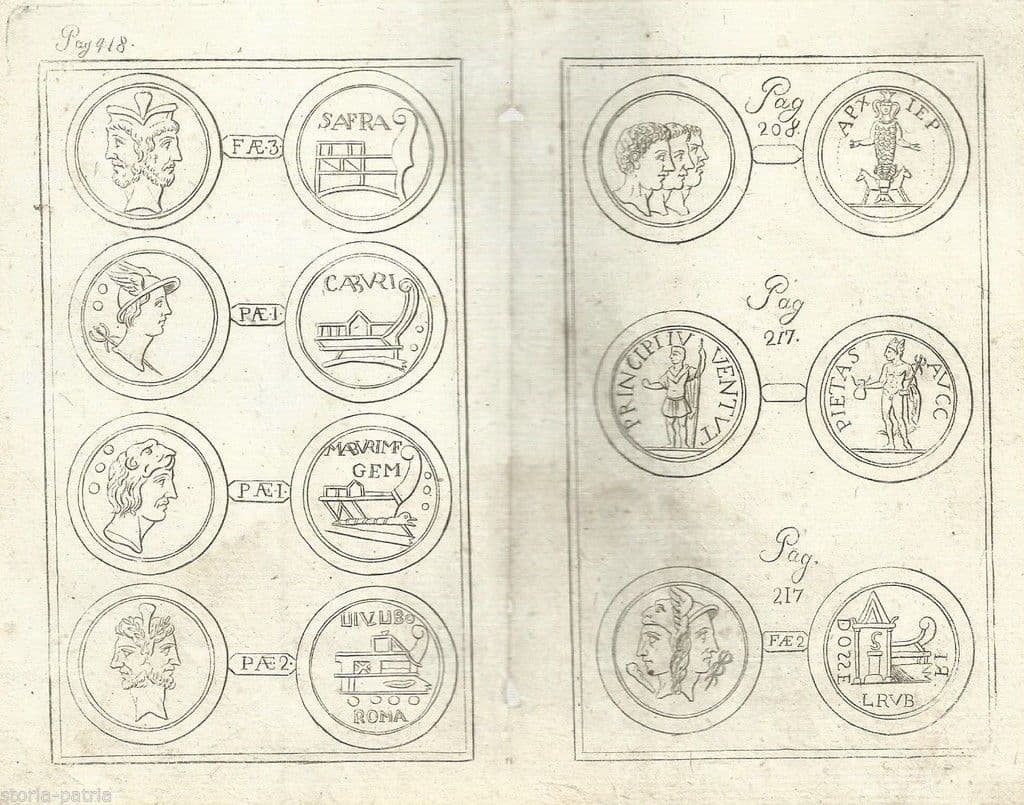 Pag 418.
FÆ·3
SAFRA
PÆ·I·
CABVRI
PÆ·I·
MABVRIMF
GEM
PÆ2·
ROMA
Pag
208.
APX IEP
Pag
217.
PRINCIPI IVVENTVT
PIETAS AVCC
Pag.
217
FÆ2
DOSSE
S
LRVB
storia-patria